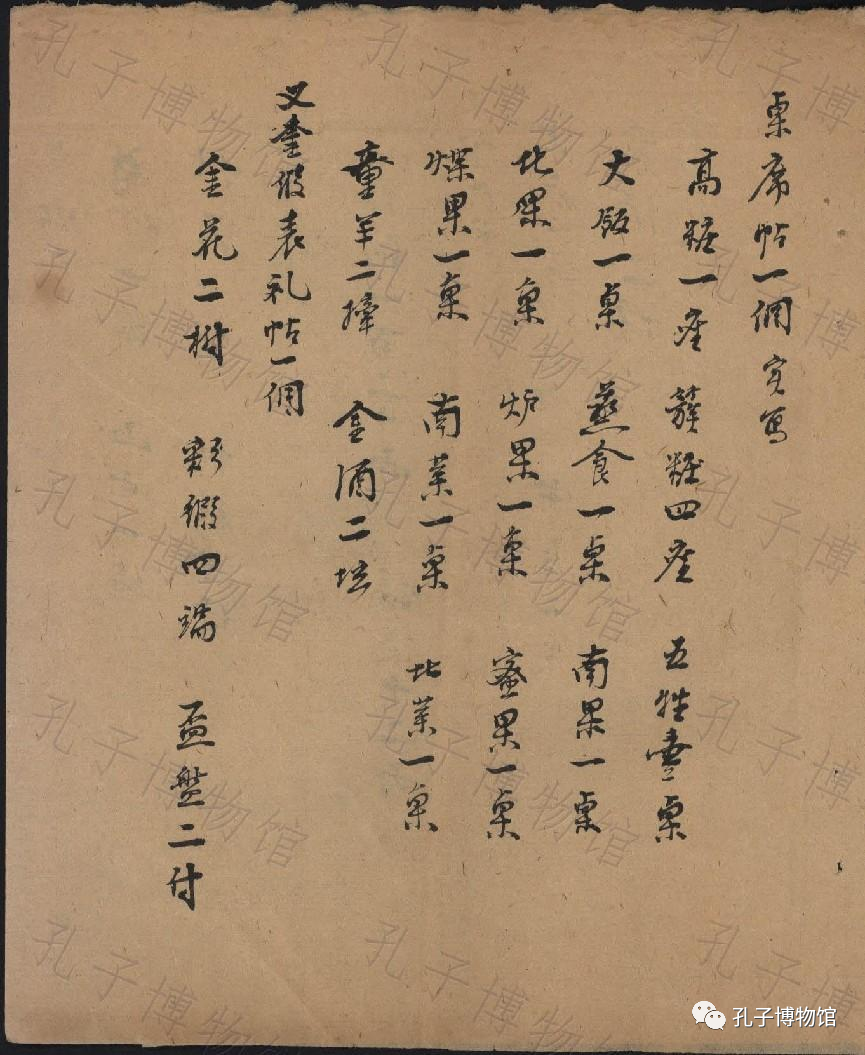 桌席帖一個 宜写
高糖一座 簇糖四座 五牲壹桌
大飯一桌 蒸食一桌 南果一桌
北果一桌 炉果一桌 蜜果一桌
煠果一桌 南菜一桌 北菜一桌
童羊二牽 金酒二坛
又奩假表礼帖一個
金花二樹 彩緞四端 盃盤二付
孔子博物馆